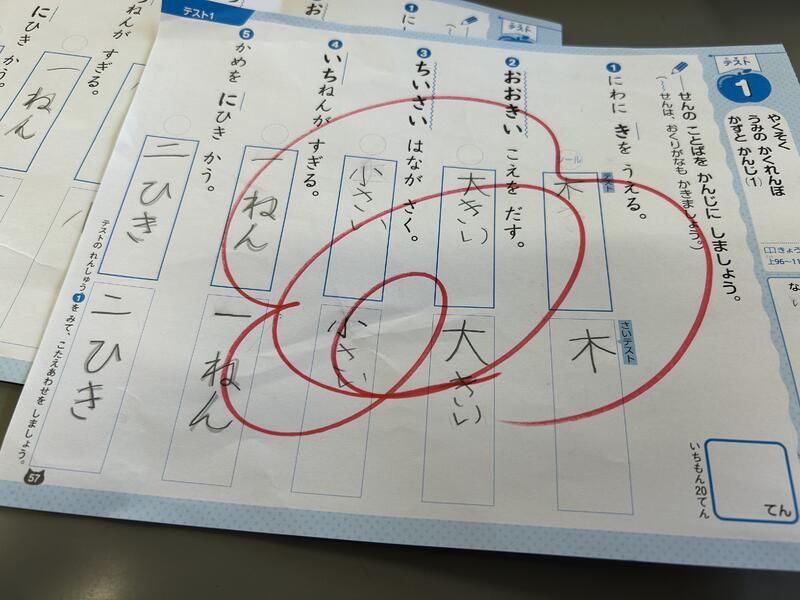 テスト1
テスト
1
やくそく
うみの かくれんぼ
かずと かんじ(1)
――せんの ことばを かんじに しましょう。
(〰〰せんは、おくりがなも かきましょう。)
❶にわに きを うえる。
❷おおきい こえを だす。
❸ちいさい はなが さく。
❹いちねんが すぎる。
❺かめを にひき かう。
テスト
木
大きい
小さい
一ねん
二ひき
さいテスト
木
大きい
小さい
一ねん
二ひき
てん
いちもん20てん
テストの れんしゅう❶を みて、こたえあわせを しましょう。
57
上96〜11
ねんが すぎる。
にひき かう。
一ねん